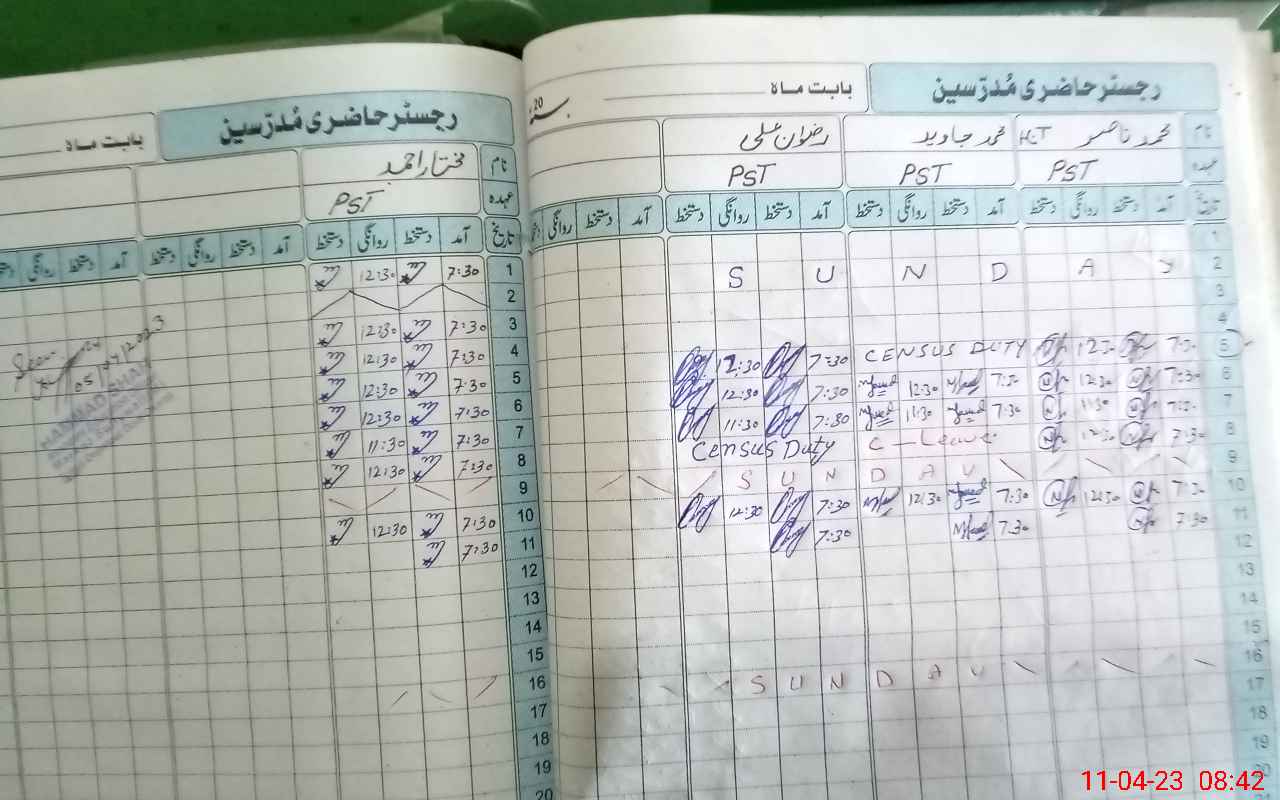 رجسٹر حاضری مُدرّسین
بابت ماہ
سنہ 20
نام محمد ناصر H.T محمد جاوید رضوان علی
عہدہ PST PST PST
تاریخ آمد دستخط روانگی دستخط آمد دستخط روانگی دستخط آمد دستخط روانگی دستخط آمد دستخط روانگی
1
2 S U N D A Y
3
4
5 7:30 12:30 CENSUS DUTY 7:30 12:30
6 7:30 12:30 7:30 12:30 7:30 12:30
7 7:30 11:30 7:30 11:30 7:30 11:30
8 7:30 12:30 C-Leave Census Duty
9 S U N D A Y
10 7:30 12:30 7:30 12:30 7:30 12:30
11 7:30 7:30 7:30
12
13
14
15
16 S U N D A Y
17
18
19
20
رجسٹر حاضری مُدرّسین
بابت ماہ
نام مختار احمد
عہدہ PST
تاریخ آمد دستخط روانگی دستخط آمد دستخط روانگی دستخط آمد دستخط روانگی
1 7:30 12:30
2
3 7:30 12:30
4 7:30 12:30
5 7:30 12:30
6 7:30 12:30
7 7:30 11:30
8 7:30 12:30
9
10 7:30 12:30
11 7:30
12
13
14
15
16
17
18
19
20
Seen
05/04/2023
11-04-23 08:42